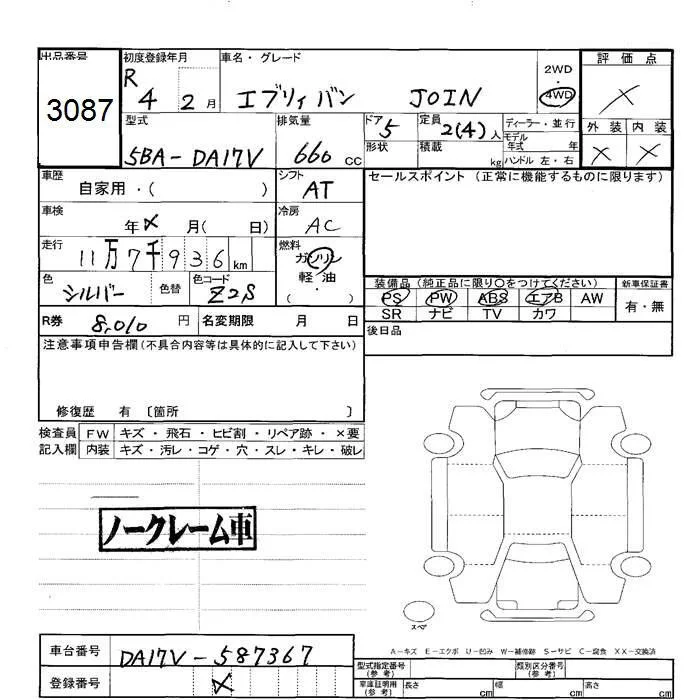 出品番号 初度登録年月 車名・グレード 2WD 評価点
3087 R 4 2月 エブリィバン JOIN 4WD ×
型式 排気量 ドア 5 定員 2(4)人 ディーラー・並行 外装 内装
5BA-DA17V 660cc 形状 積載 kg モデル年式 年 × ×
ハンドル 左・右
車歴 自家用・( ) シフト AT セールスポイント (正常に機能するものに限ります)
車検 年 × 月( 日) 冷房 AC
走行 11万7千936km 燃料 ガソリン
軽・油
( )
色 シルバー 色替 色コード Z2S 装備品 (純正品に限り○をつけてください) 新車保証書
PS PW ABS エアB AW 有・無
SR ナビ TV カワ
R券 8,010 円 名変期限 月 日 後日品
注意事項申告欄(不具合内容等は具体的に記入して下さい)
修復歴 有 〔箇所 〕
検査員 FW キズ・飛石・ヒビ割・リペア跡・×要
記入欄 内装 キズ・汚レ・コゲ・穴・スレ・キレ・破レ
ノークレーム車
スペア
A-キズ E-エクボ U-凹み W-補修跡 S-サビ C-腐食 XX-交換済
車台番号 DA17V-587367
登録番号 ×
型式指定番号(参考) 類別区分番号(参考)
車庫証明用(参考) 長さ cm 幅 cm 高さ cm